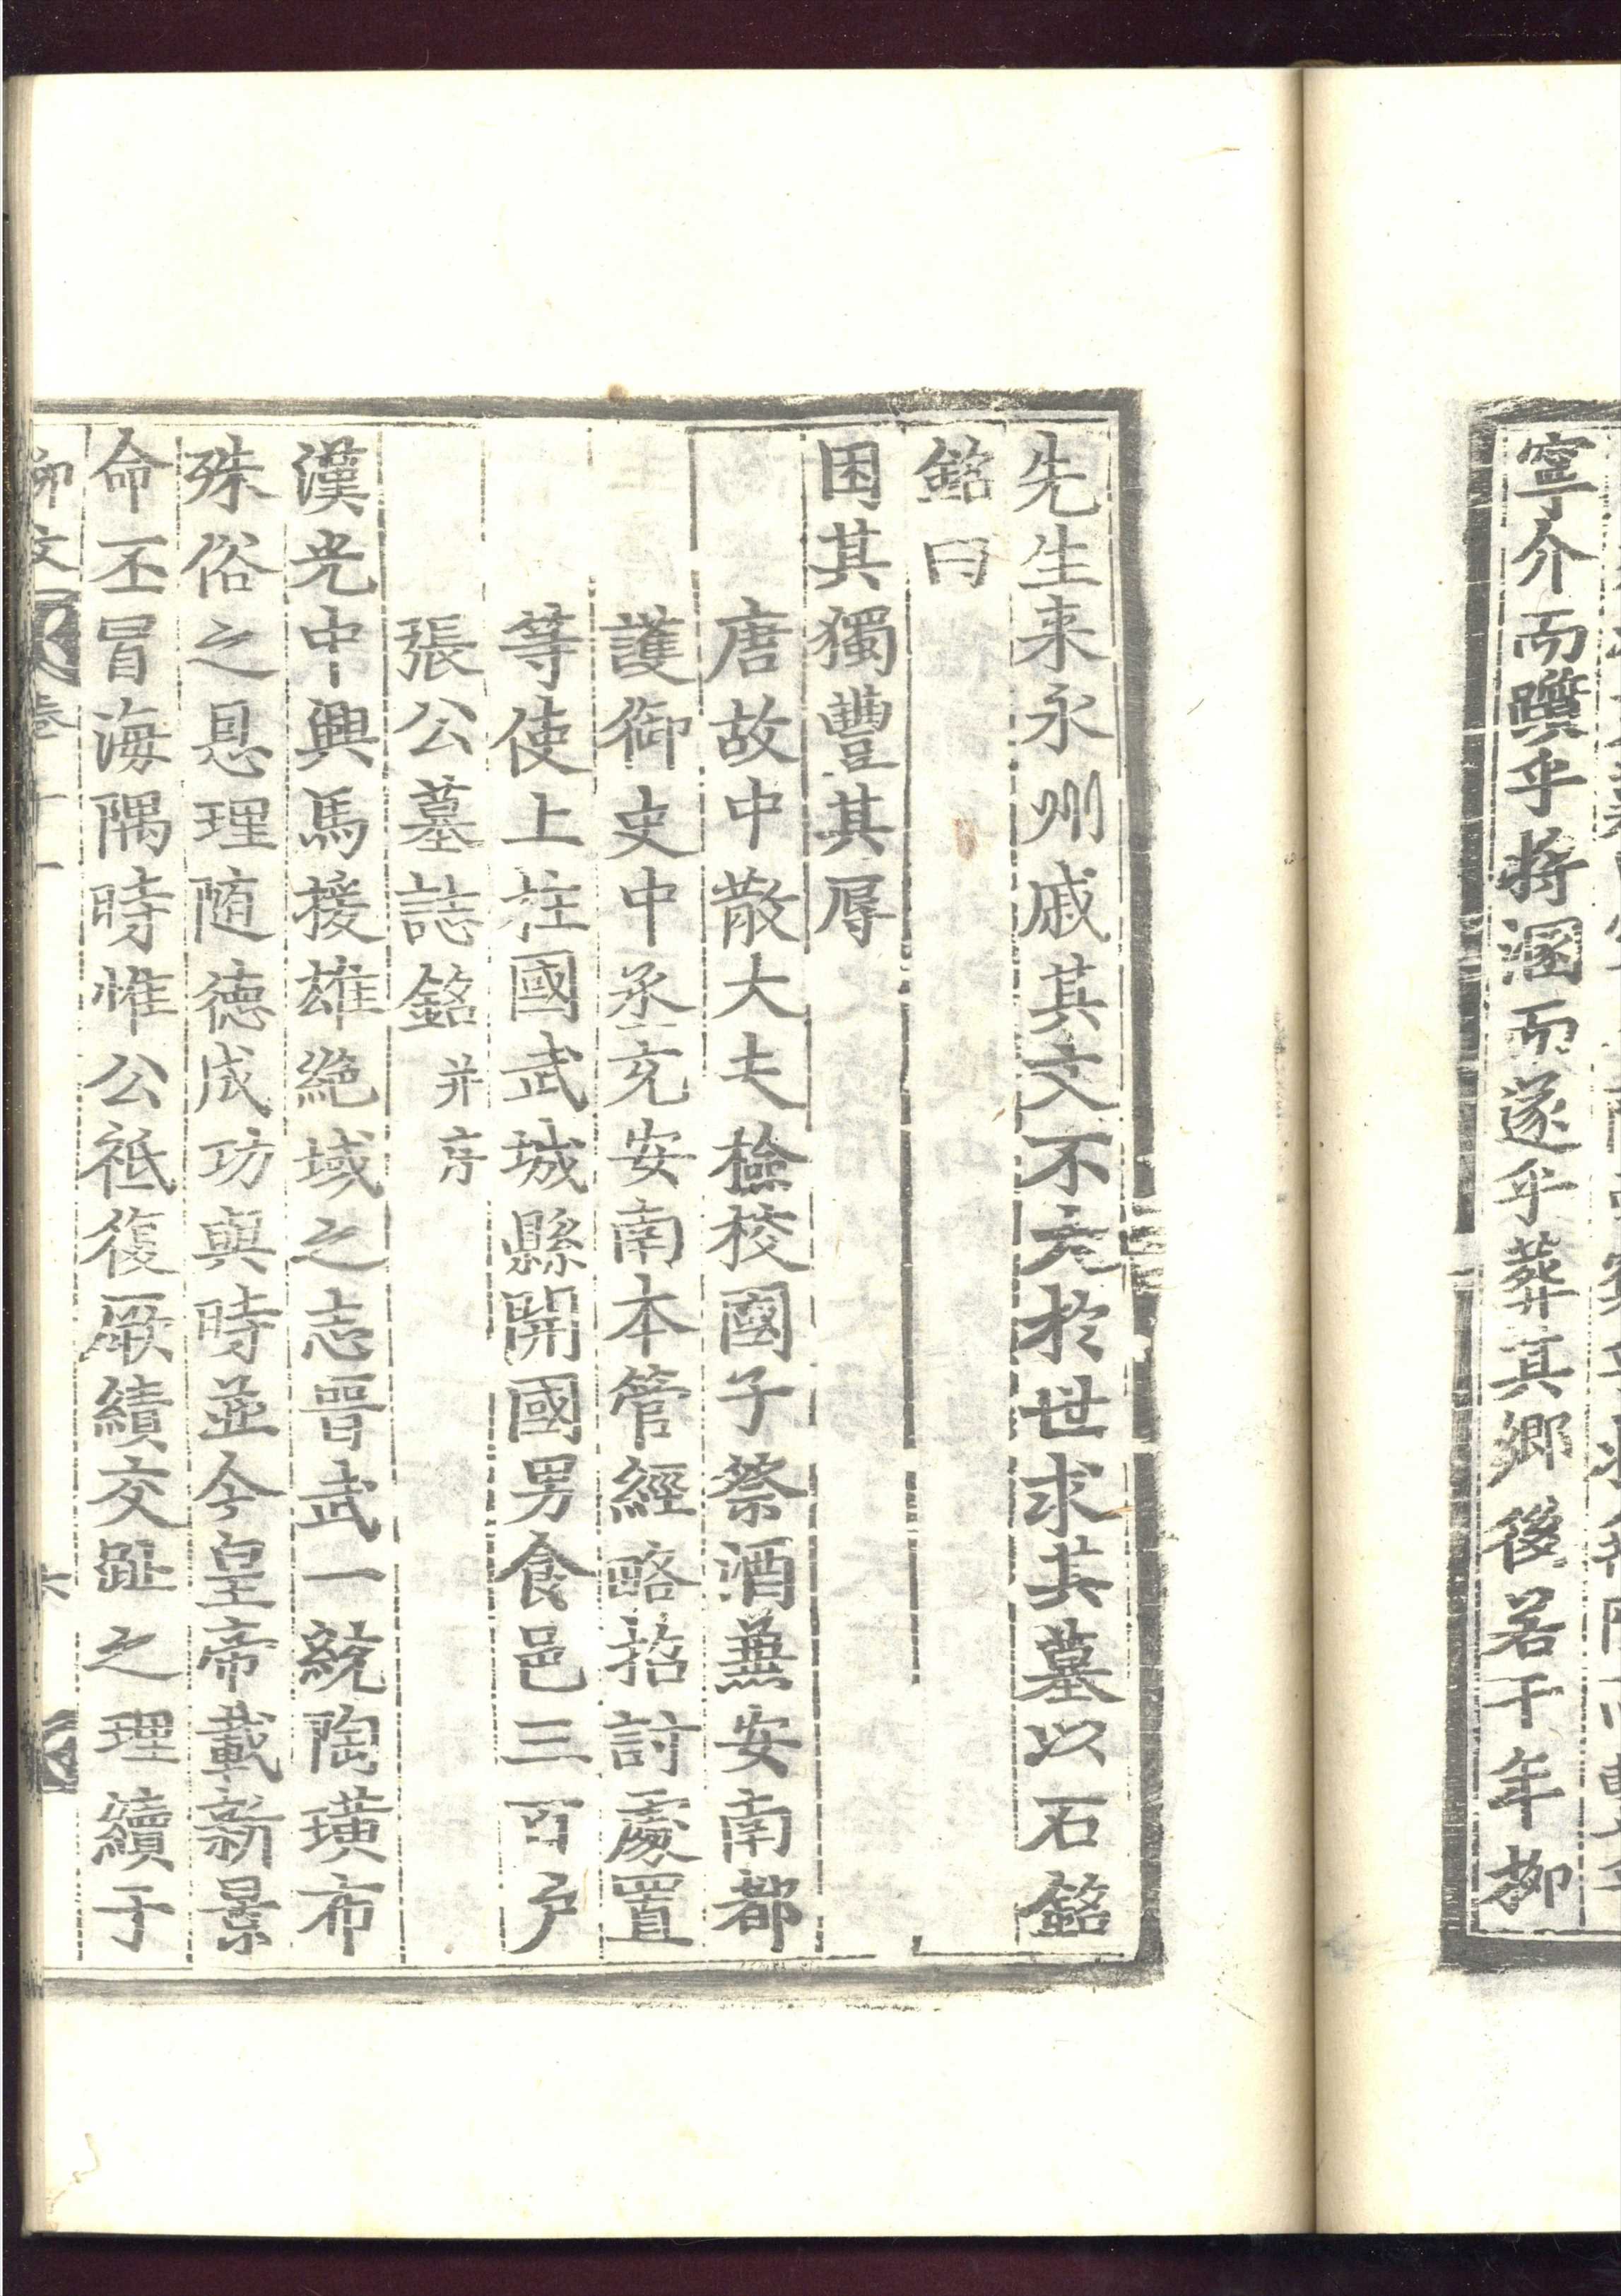 寜介而躓乎將溷而遂乎葬其鄉後若干年柳
先生来永州戚其文不大於世求其墓以石銘
銘曰
困其獨豐其辱
唐故中散大夫檢校國子祭酒兼安南都
護御史中丞充安南本管經略招討處置
等使上柱國武城縣開國男食邑三百户
張公墓誌銘 并序
漢光中興馬援雄絶域之志晉武一統陶璜布
殊俗之恩理随德成功與時並今皇帝載新景
命丕冒海隅時惟公祗復厥績交趾之理續于
柳文 卷十一